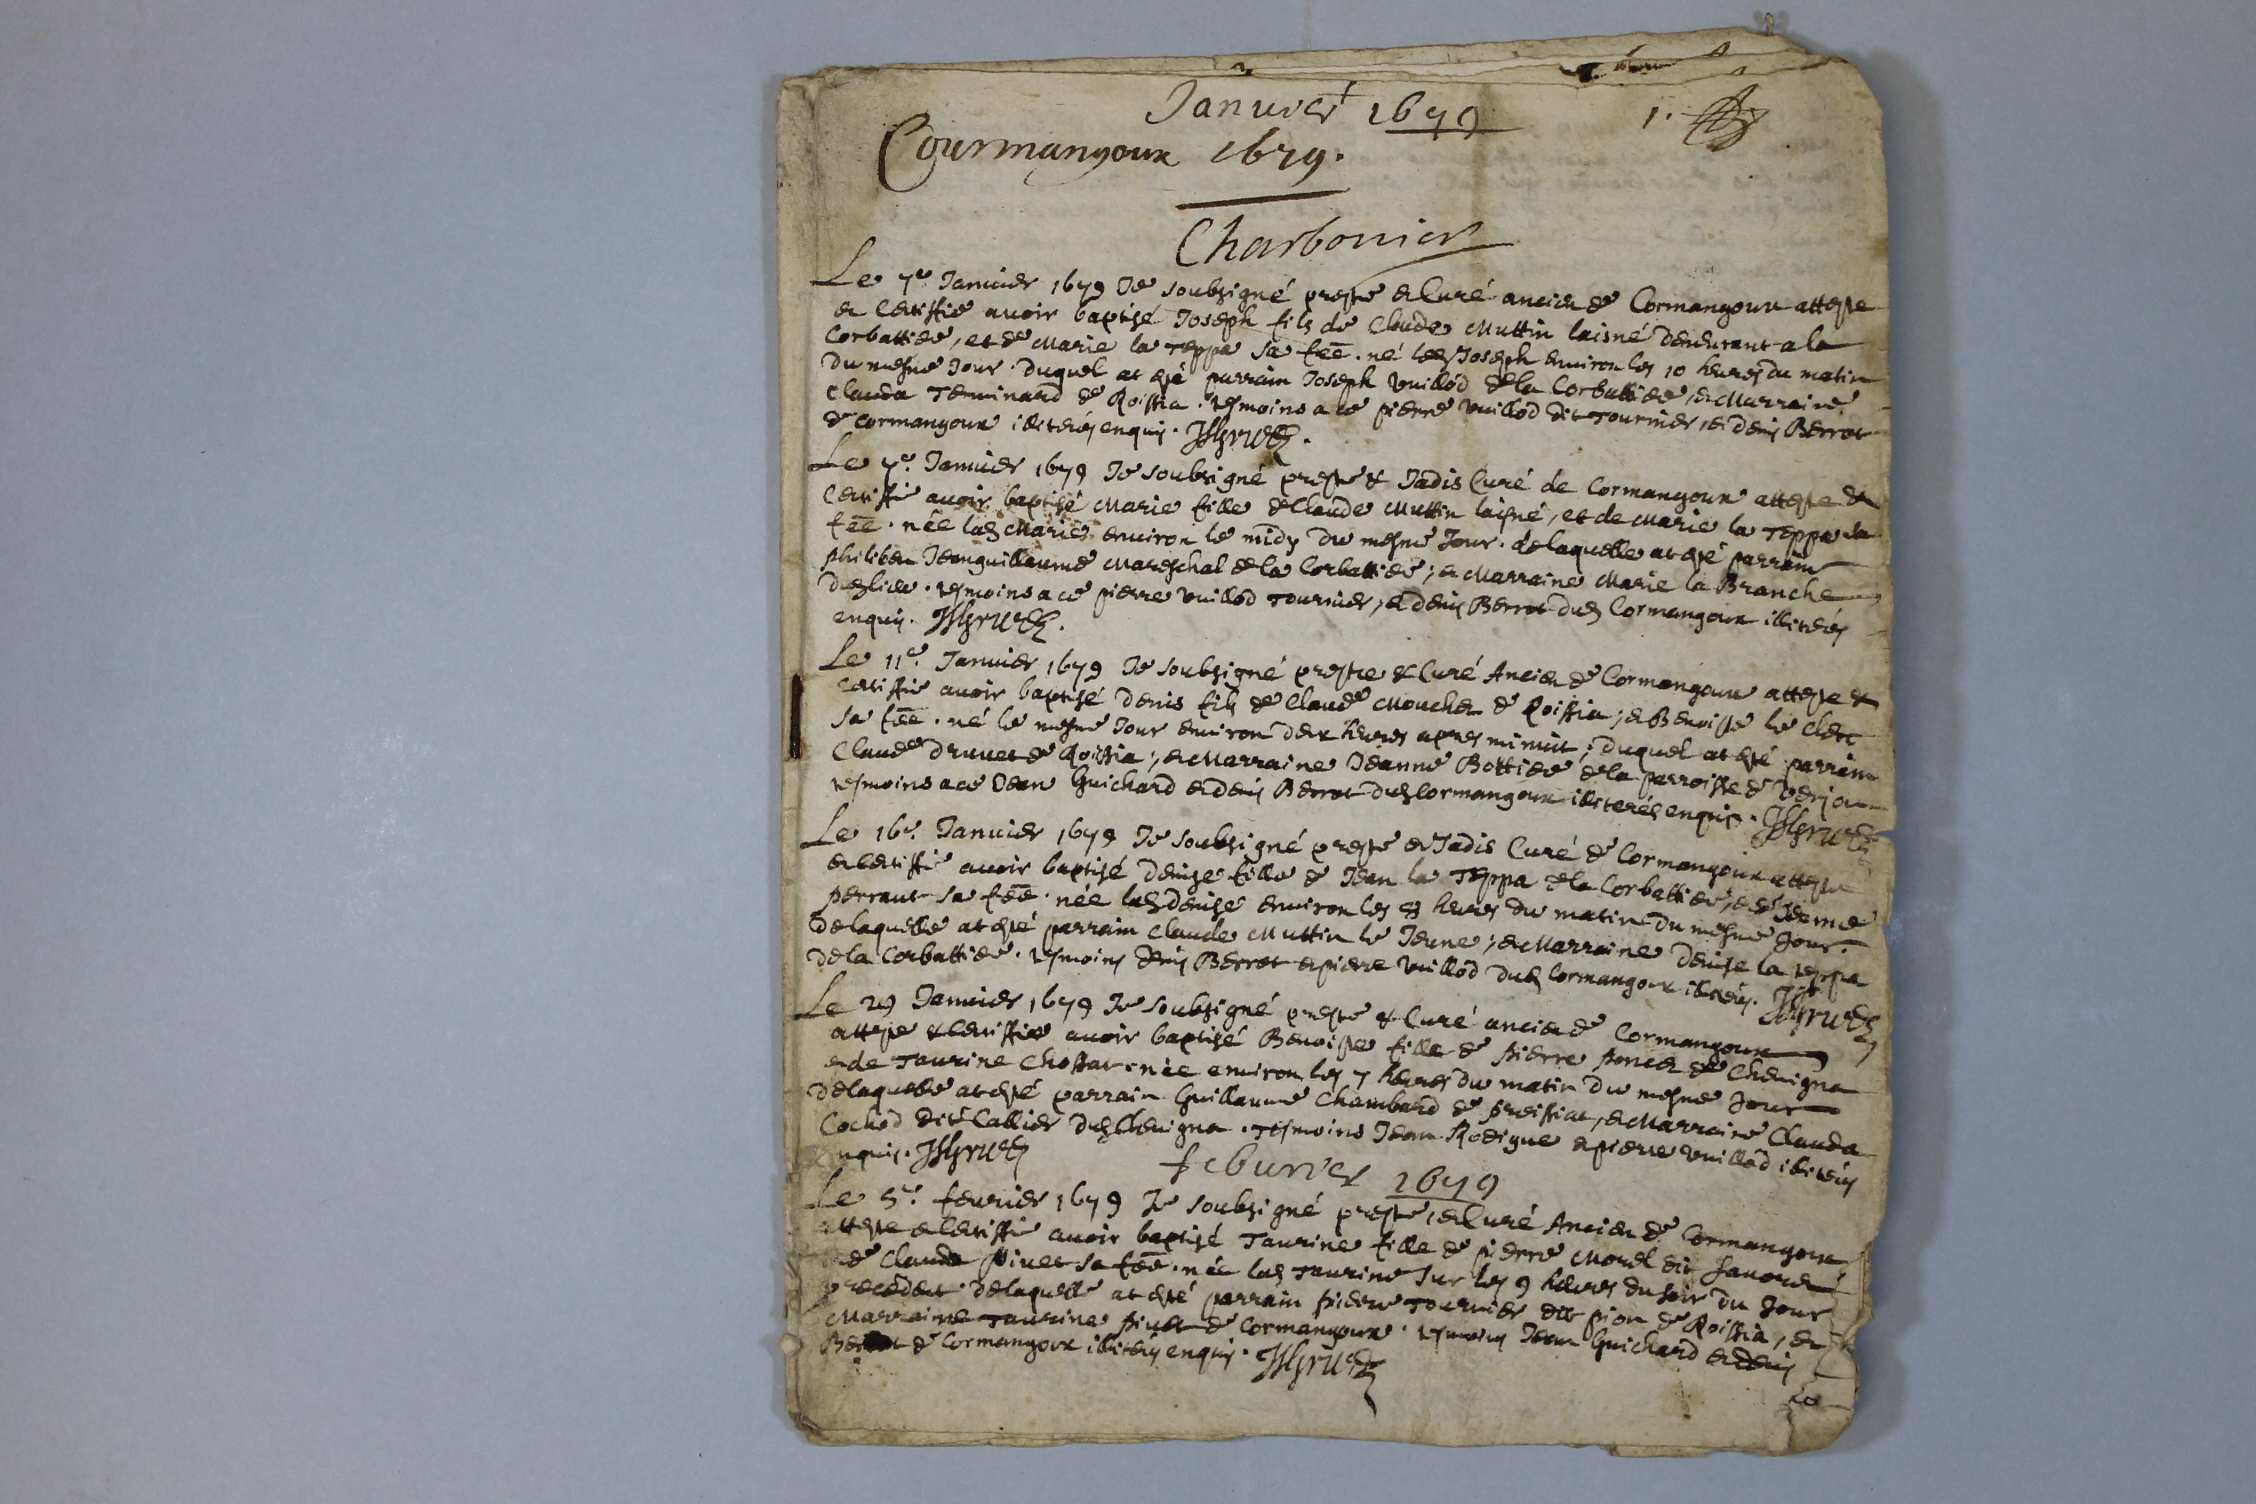 Januier 1679
1.
Courmangoux 1679.
Charbonier
Le 7e. Januier 1679 Je soubsigné prestre et Curé ancien de Cormangoux atteste
et certiffie auoir baptisé Joseph fils de Claude Muttin laisné demeurant a la
Corbattiere, et de Marie la Teppe sa fēē. né led Joseph enuiron les 10 heures du matin
du mesme Jour. duquel at esté parrain Joseph Vuillod de la Corbattiere, et Marraine
Clauda Teruinard de Roissia. tesmoins a ce pierre Vuillod dit Tournier, et denis Berrot
de Cormangoux illiterés enquis.
Le 7e. Januier 1679 Je soubsigné prestre & Jadis Curé de Cormangoux atteste et
Certiffie auoir baptisé Marie fille de Claude Muttin laisné, et de Marie la Teppe sa
fēē. née lad Marie enuiron le midy du mesme Jour. de laquelle at esté parrain
philibert Jeanguillaume Mareschal de la Corbattiere; et Marraine Marie la Branche
dud lieu. tesmoins a ce pierre Vuillod Tournier, et denis Berrot dud Cormangoux illiterés
enquis.
Le 11e. Januier 1679 Je soubsigné prestre & Curé Ancien de Cormangoux atteste &
certiffie auoir baptisé denis fils de Claude Mouchet de Roissia; et Benoiste le Clerc
sa fēē. né le mesme Jour enuiron deux heures apres minuit; duquel at esté parrain
Claude druuet de Roissia; et Marraine Jeanne Bottiere de la parroisse de Verjon
tesmoins a ce Jean Guichard et denis Berrot dud Cormangoux illiterés enquis.
Le 16e. Januier 1679 Je soubsigné prestre et Jadis Curé de Cormangoux atteste
et certiffie auoir baptisé denise fille de Jean la Teppa de la Corbattiere, et de Jeanne
perraut sa fēē. née lad denise enuiron les 8 heures du matin du mesme Jour.
de laquelle at esté parrain Claude Muttin le Jeune; et Marraine denise la teppa
de la Corbattiere. tesmoins denis Berrot et pierre Vuillod dud Cormangoux illiterés.
Le 29 Januier 1679 Je soubsigné prestre & Curé ancien de Cormangoux
atteste & certiffie auoir baptisé Benoiste fille de pierre poncet de Cheuigna
et de Taurine Chossat. née enuiron les 7 heures du matin du mesme Jour
de laquelle at esté parrain Guillaume Chambard de pressiat, et Marraine Clauda
Cochod dite Callier dud Cheuigna. tesmoins Jean Rodigue et pierre Vuillod illiterés
enquis.
feburier 1679
Le 5e. feurier 1679 Je soubsigné prestre, et Curé Ancien de Cormangoux
atteste et certiffie auoir baptisé Taurine fille de pierre Morel dit
et de Clauda piuet sa fēē. née lad Taurine sur les 9 heures du soir du Jour
precedent. de laquelle at esté parrain pierre Tournier dit pion de Roissia, et
Marraine Taurine piuet de Cormangoux. tesmoins Jean Guichard et denis
Berrot de Cormangoux illiterés enquis.
Le